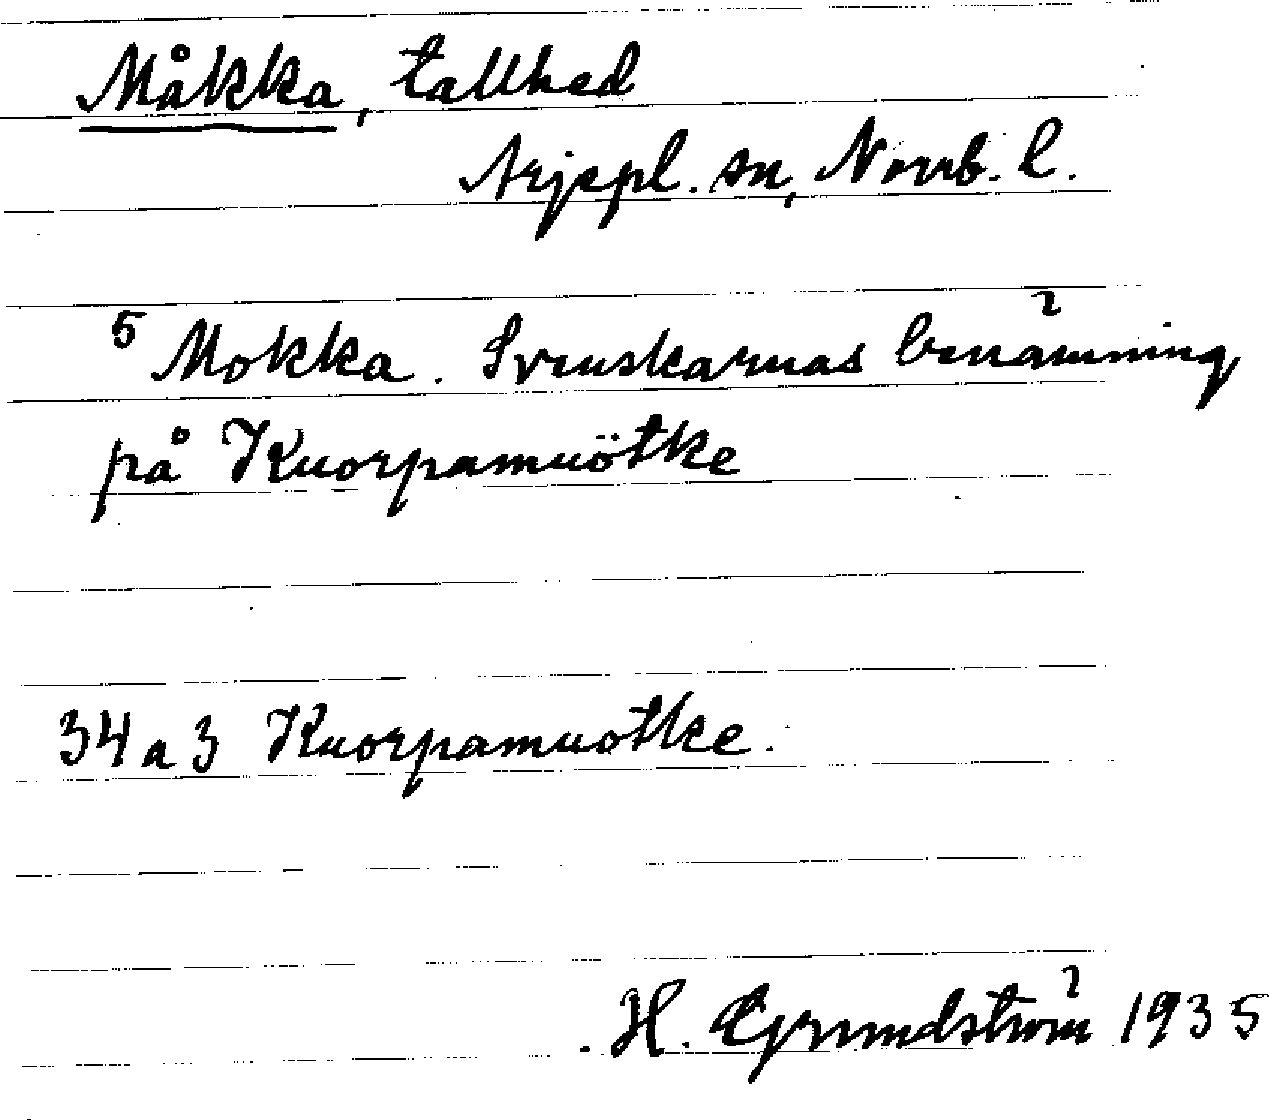 Måkka, tallhed
Arjepl. sn, Norrb. l.
5 Mokka. Svenskarnas benämning
på Kuorpamuötke
34 a 3 Kuorpamuotke.
H. Grundström 1935